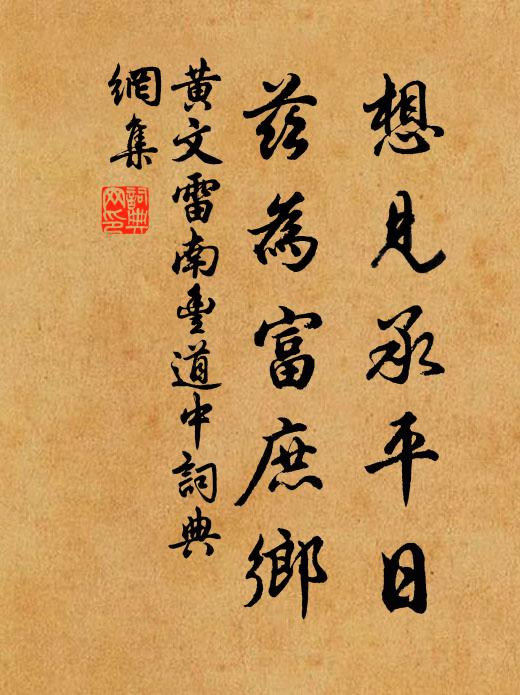 想見承平日
茲為富庶鄉
黃文雷南豐道中詞典
網集
詞典
网印